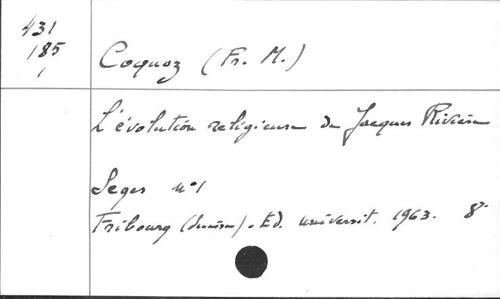 431
185
1
Coquoz (Fr. M.)
L'évolution religieuse de Jacques Rivière
Seges n°1
Fribourg (Suisse). Ed. universit. 1963. 8°